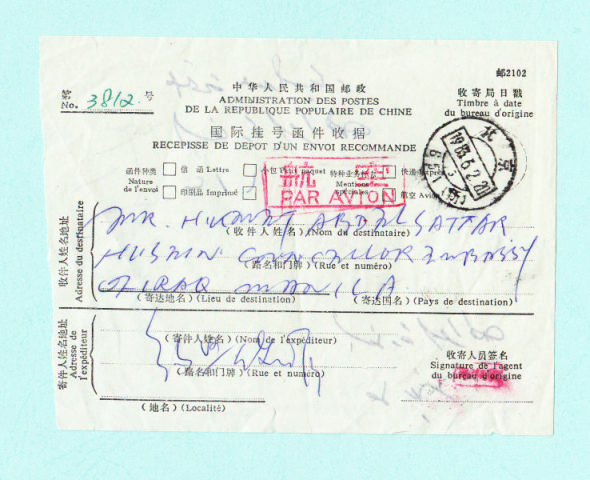 邮2102
寄 No. 3812 号
中华人民共和国邮政
ADMINISTRATION DES POSTES
DE LA REPUBLIQUE POPULAIRE DE CHINE
收寄局日戳
Timbre à date
du bureau d'origine
国际挂号函件收据
RECEPISSE DE DEPOT D'UN ENVOI RECOMMANDE
北京
1983.6.2
函件种类
Nature
de l'envoi
信 函 Lettre
小包 Petit paquet
印刷品 Imprimé
特种业务
Mentions
spéciales
快递 Exprès
航空 Avion
航空
PAR AVION
收件人姓名地址
Adresse du destinataire
MR. HIKMAT ABDUL SATTAR
(收件人姓名) (Nom du destinataire)
HUSAIN COUNCILLOR EMBASSY
(路名和门牌) (Rue et numéro)
OF IRAQ MANILA
(寄达地名) (Lieu de destination)
(寄达国名) (Pays de destination)
寄件人姓名地址
Adresse de
l'expéditeur
(寄件人姓名) (Nom de l'expéditeur)
(路名和门牌) (Rue et numéro)
(地名) (Localité)
收寄人员签名
Signature de l'agent
du bureau d'origine